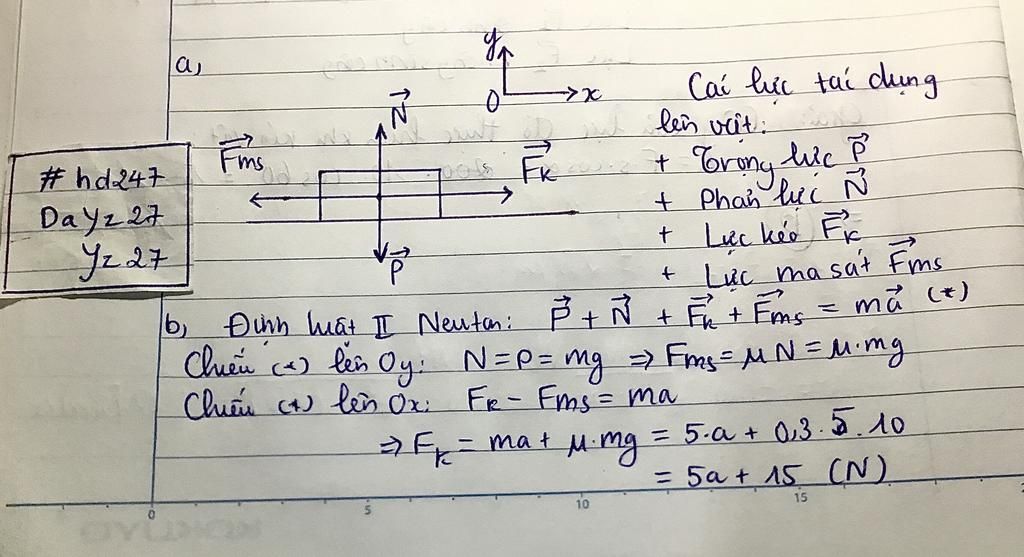 a,
y
O
x
N⃗
F⃗ms
F⃗k
P⃗
Các lực tác dụng
lên vật:
+ Trọng lực P⃗
+ Phản lực N⃗
+ Lực kéo F⃗k
+ Lực ma sát F⃗ms
#hd247
DaYz27
Yz27
b, Định luật II Neuton: P⃗ + N⃗ + F⃗k + F⃗ms = ma⃗ (*)
Chiếu (*) lên Oy: N = P = mg ⇒ Fms = μN = μ.mg
Chiếu (*) lên Ox: Fk - Fms = ma
⇒ Fk = ma + μ.mg = 5.a + 0,3.5.10
= 5a + 15 (N)
0 5 10 15